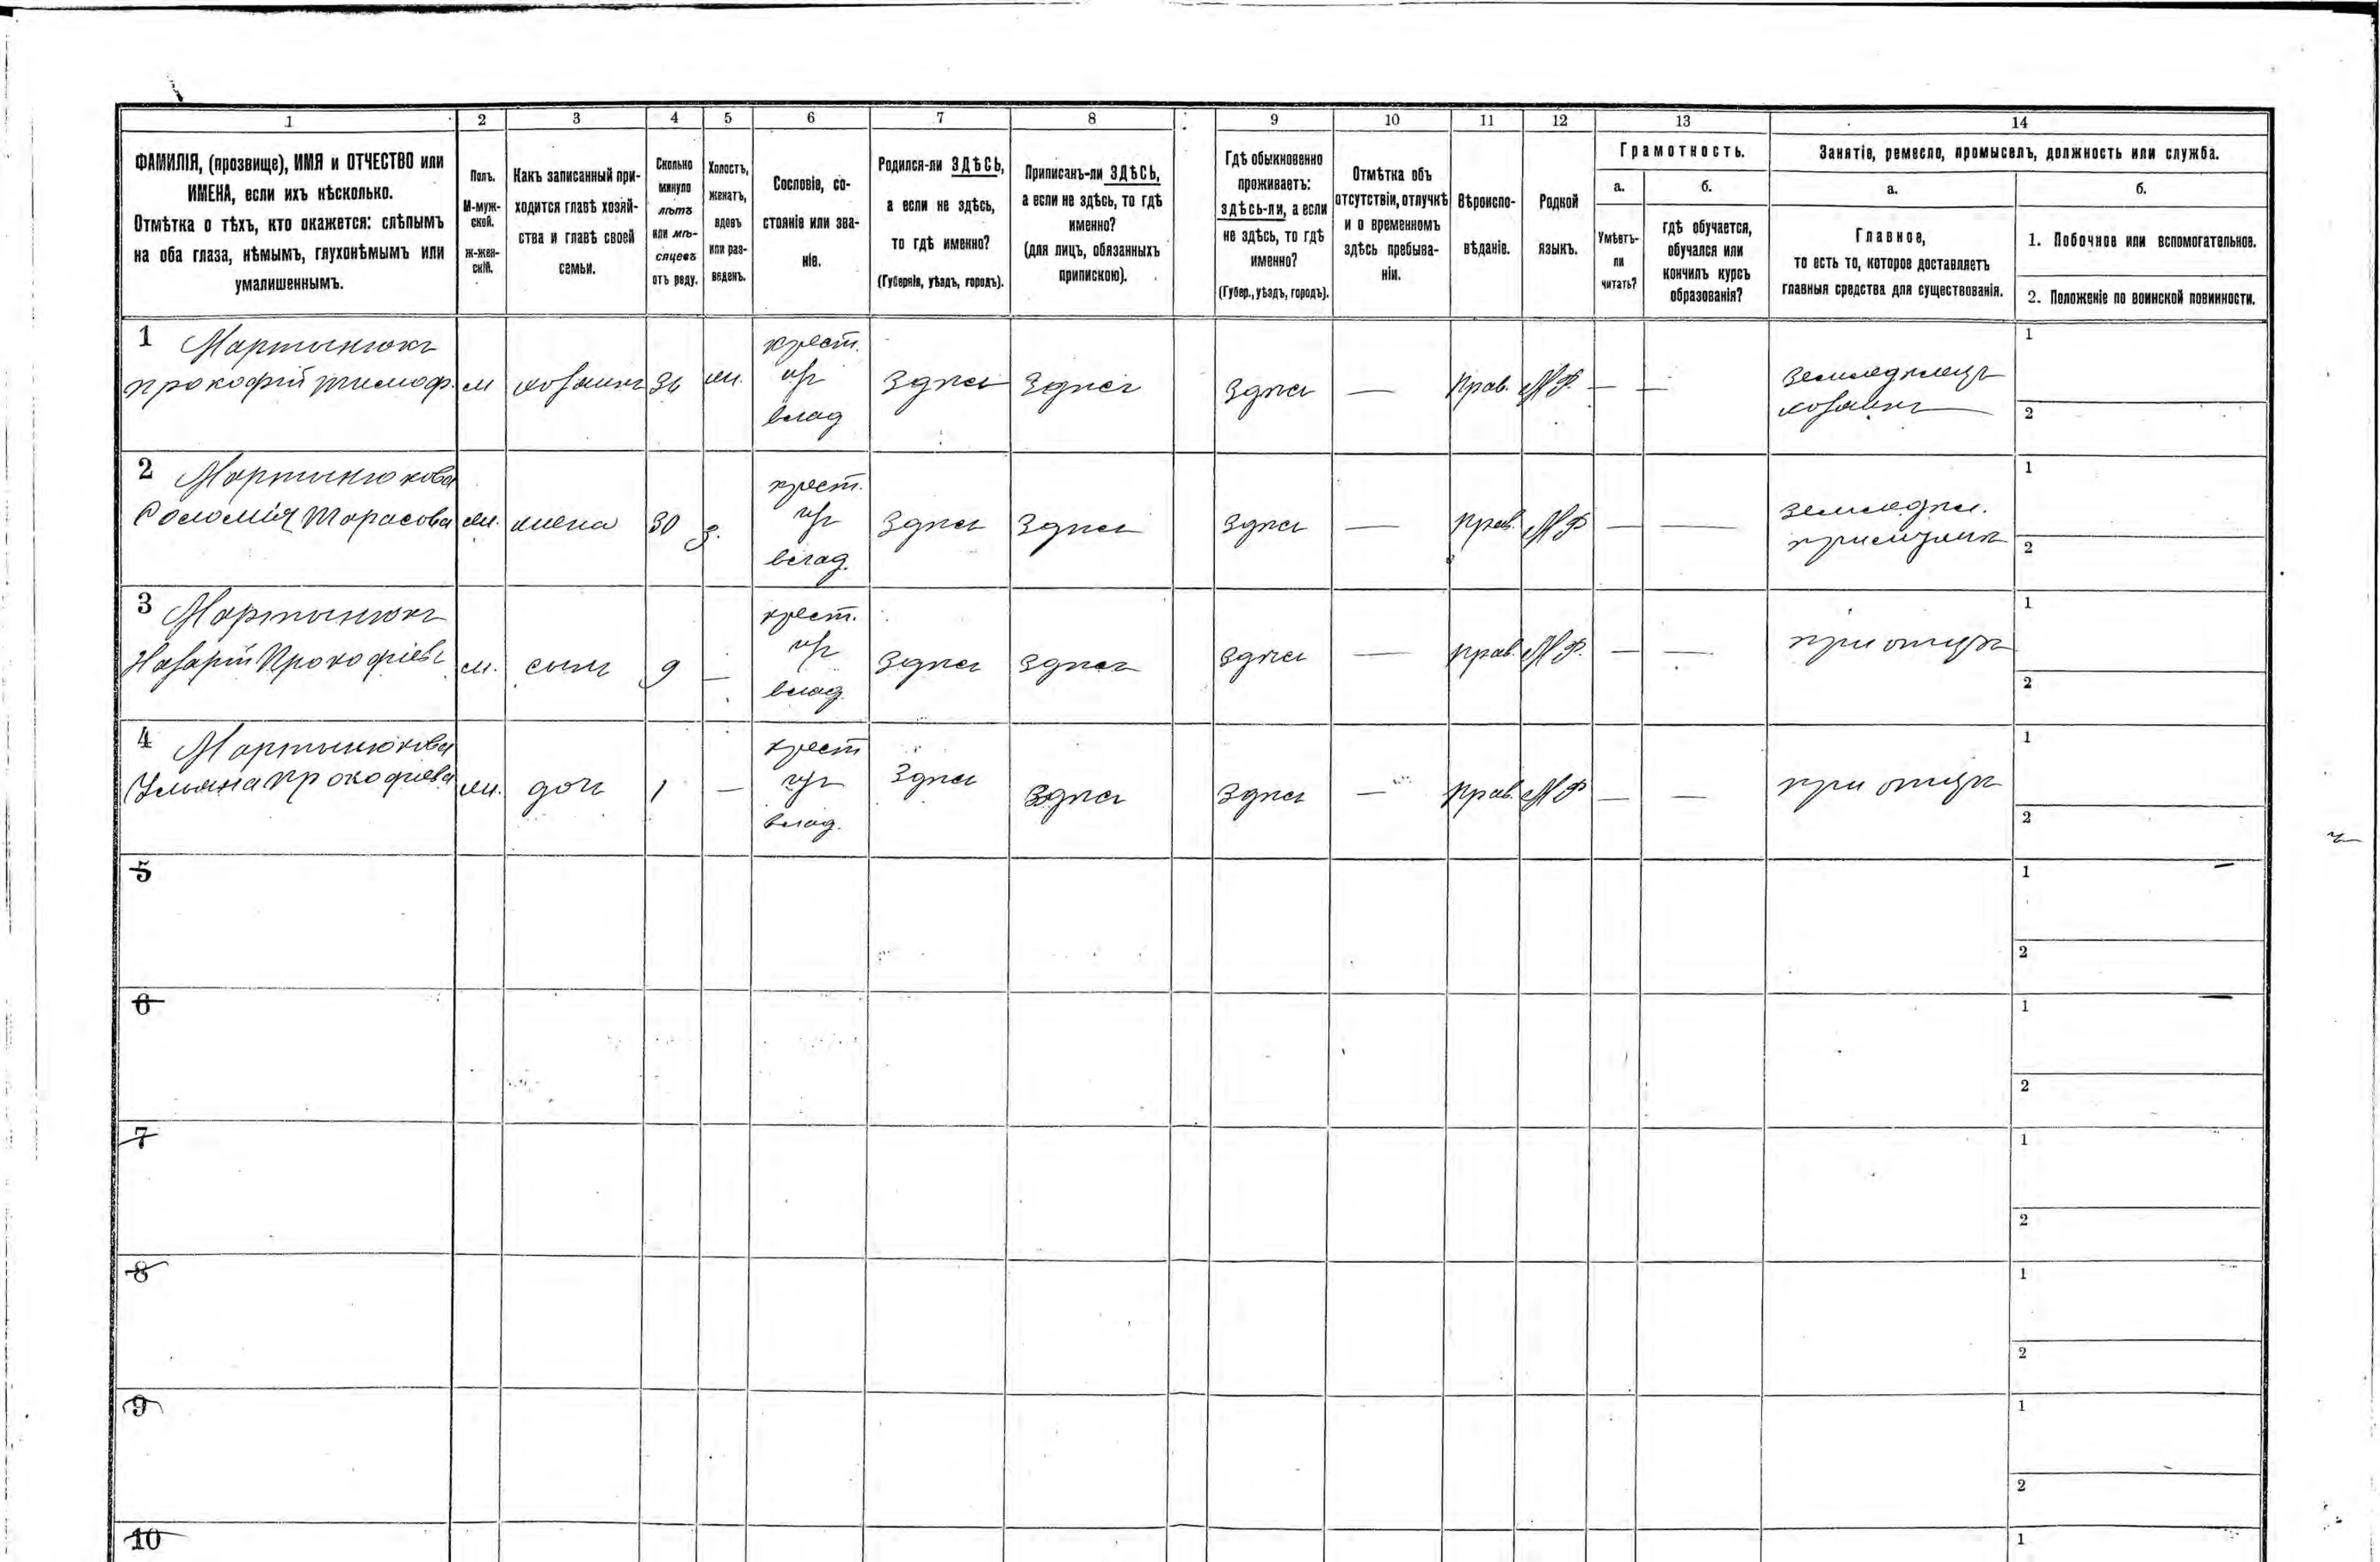 1 2 3 4 5 6 7 8 9 10 11 12 13 14
ФАМИЛІЯ, (прозвище), ИМЯ и ОТЧЕСТВО или
ИМЕНА, если ихъ нѣсколько.
Отмѣтка о тѣхъ, кто окажется: слѣпымъ
на оба глаза, нѣмымъ, глухонѣмымъ или
умалишеннымъ.
Полъ.
М-муж-
ской.
ж-жен-
скій.
Какъ записанный при-
ходится главѣ хозяй-
ства и главѣ своей
семьи.
Сколько
минуло
лѣтъ
или мѣ-
сяцевъ
отъ роду.
Холостъ,
женатъ,
вдовъ
или раз-
веденъ.
Сословіе, со-
стояніе или зва-
ніе.
Родился-ли ЗДѢСЬ,
а если не здѣсь,
то гдѣ именно?
(Губернія, уѣздъ, городъ).
Приписанъ-ли ЗДѢСЬ,
а если не здѣсь, то гдѣ
именно?
(для лицъ, обязанныхъ
припискою).
Гдѣ обыкновенно
проживаетъ:
здѣсь-ли, а если
не здѣсь, то гдѣ
именно?
(Губер., уѣздъ, городъ).
Отмѣтка объ
отсутствіи, отлучкѣ
и о временномъ
здѣсь пребыва-
ніи.
Вѣроиспо-
вѣданіе.
Родной
языкъ.
Грамотность.
а.
Умѣетъ-
ли
читать?
б.
гдѣ обучается,
обучался или
кончилъ курсъ
образованія?
Занятіе, ремесло, промыселъ, должность или служба.
а.
Главное,
то есть то, которое доставляетъ
главныя средства для существованія.
б.
1. Побочное или вспомогательное.
2. Положеніе по воинской повинности.
1 Мартынюкъ
Прокофій Тимоф. м хозяинъ ж.
крест.
изъ
влад
здѣсь здѣсь здѣсь — Прав. М Р. — —
земледѣлецъ
хозяинъ
1
2
2 Мартынюкова
Соломія Тарасова ж. жена 30 з.
крест.
изъ
влад.
здѣсь здѣсь здѣсь — Прав. М Р — —
земледѣл.
1
2
3 Мартынюкъ
Назарій Прокофіевъ м. сынъ 9 —
крест.
изъ
влад.
здѣсь здѣсь здѣсь — Прав. М Р. — —
при отцѣ
1
2
4 Мартынюкова
Ульяна Прокофіева ж. дочь 1 —
крест
изъ
влад.
здѣсь здѣсь здѣсь — Прав. М Р — —
при отцѣ
1
2
5
1
2
6
1
2
7
1
2
8
1
2
9
1
2
10
1